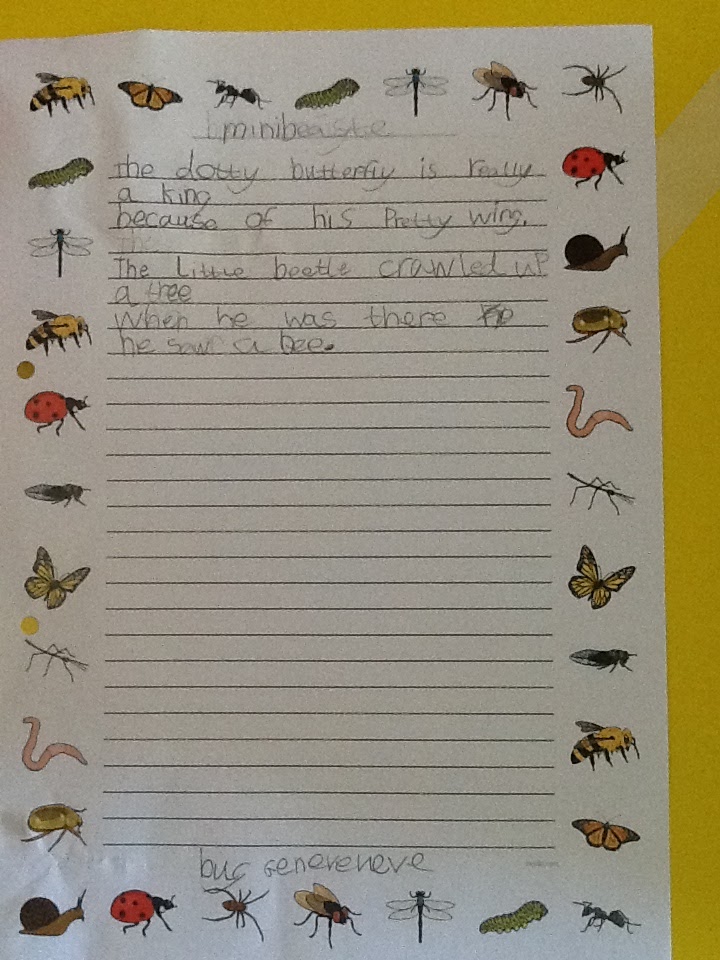 minibeaste
the dotty butterfly is really
a king
because of his Pretty wing.
the
The Little beetle crawled up
a tree
When he was there he
he saw a bee.